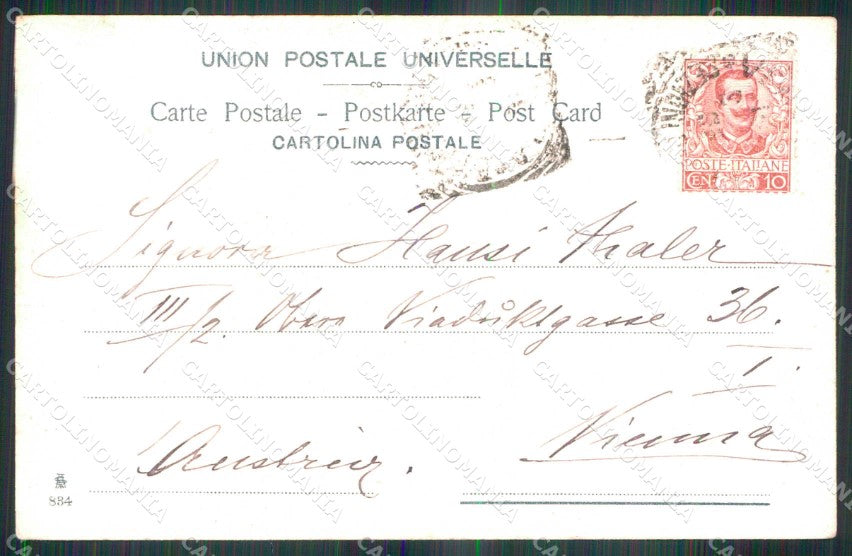 UNION POSTALE UNIVERSELLE
Carte Postale - Postkarte - Post Card
CARTOLINA POSTALE
POSTE·ITALIANE
CEN 10
Signora Hansi Thaler
III/2. Obere Viaduktgasse 36.
I.
Vienna
Austria.
834
CARTOLINOMANIA